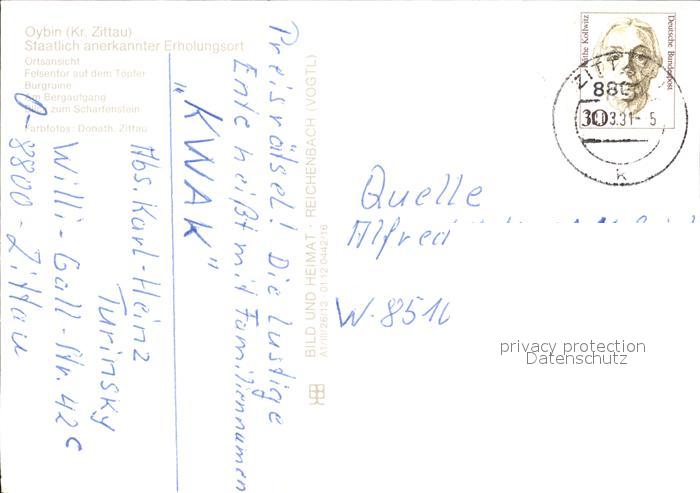 Oybin (Kr. Zittau)
Staatlich anerkannter Erholungsort
Ortsansicht
Felsentor auf dem Töpfer
Burgruine
Am Bergaufgang
zum Scharfenstein
Farbfotos: Donath, Zittau
Preisrätsel! Die lustige
Ente heißt mit Familiennamen
"KWAK"
Abs. Karl-Heinz
Turinsky
Willi-Gall-Str. 42c
O-8800-Zittau
BILD UND HEIMAT · REICHENBACH (VOGTL)
A1/III/26/13 · 01 12 0442/16
Käthe Kollwitz
Deutsche Bundespost
30
ZITT
880
3.91-5
k
Quelle
Alfred
W-851
privacy protection
Datenschutz